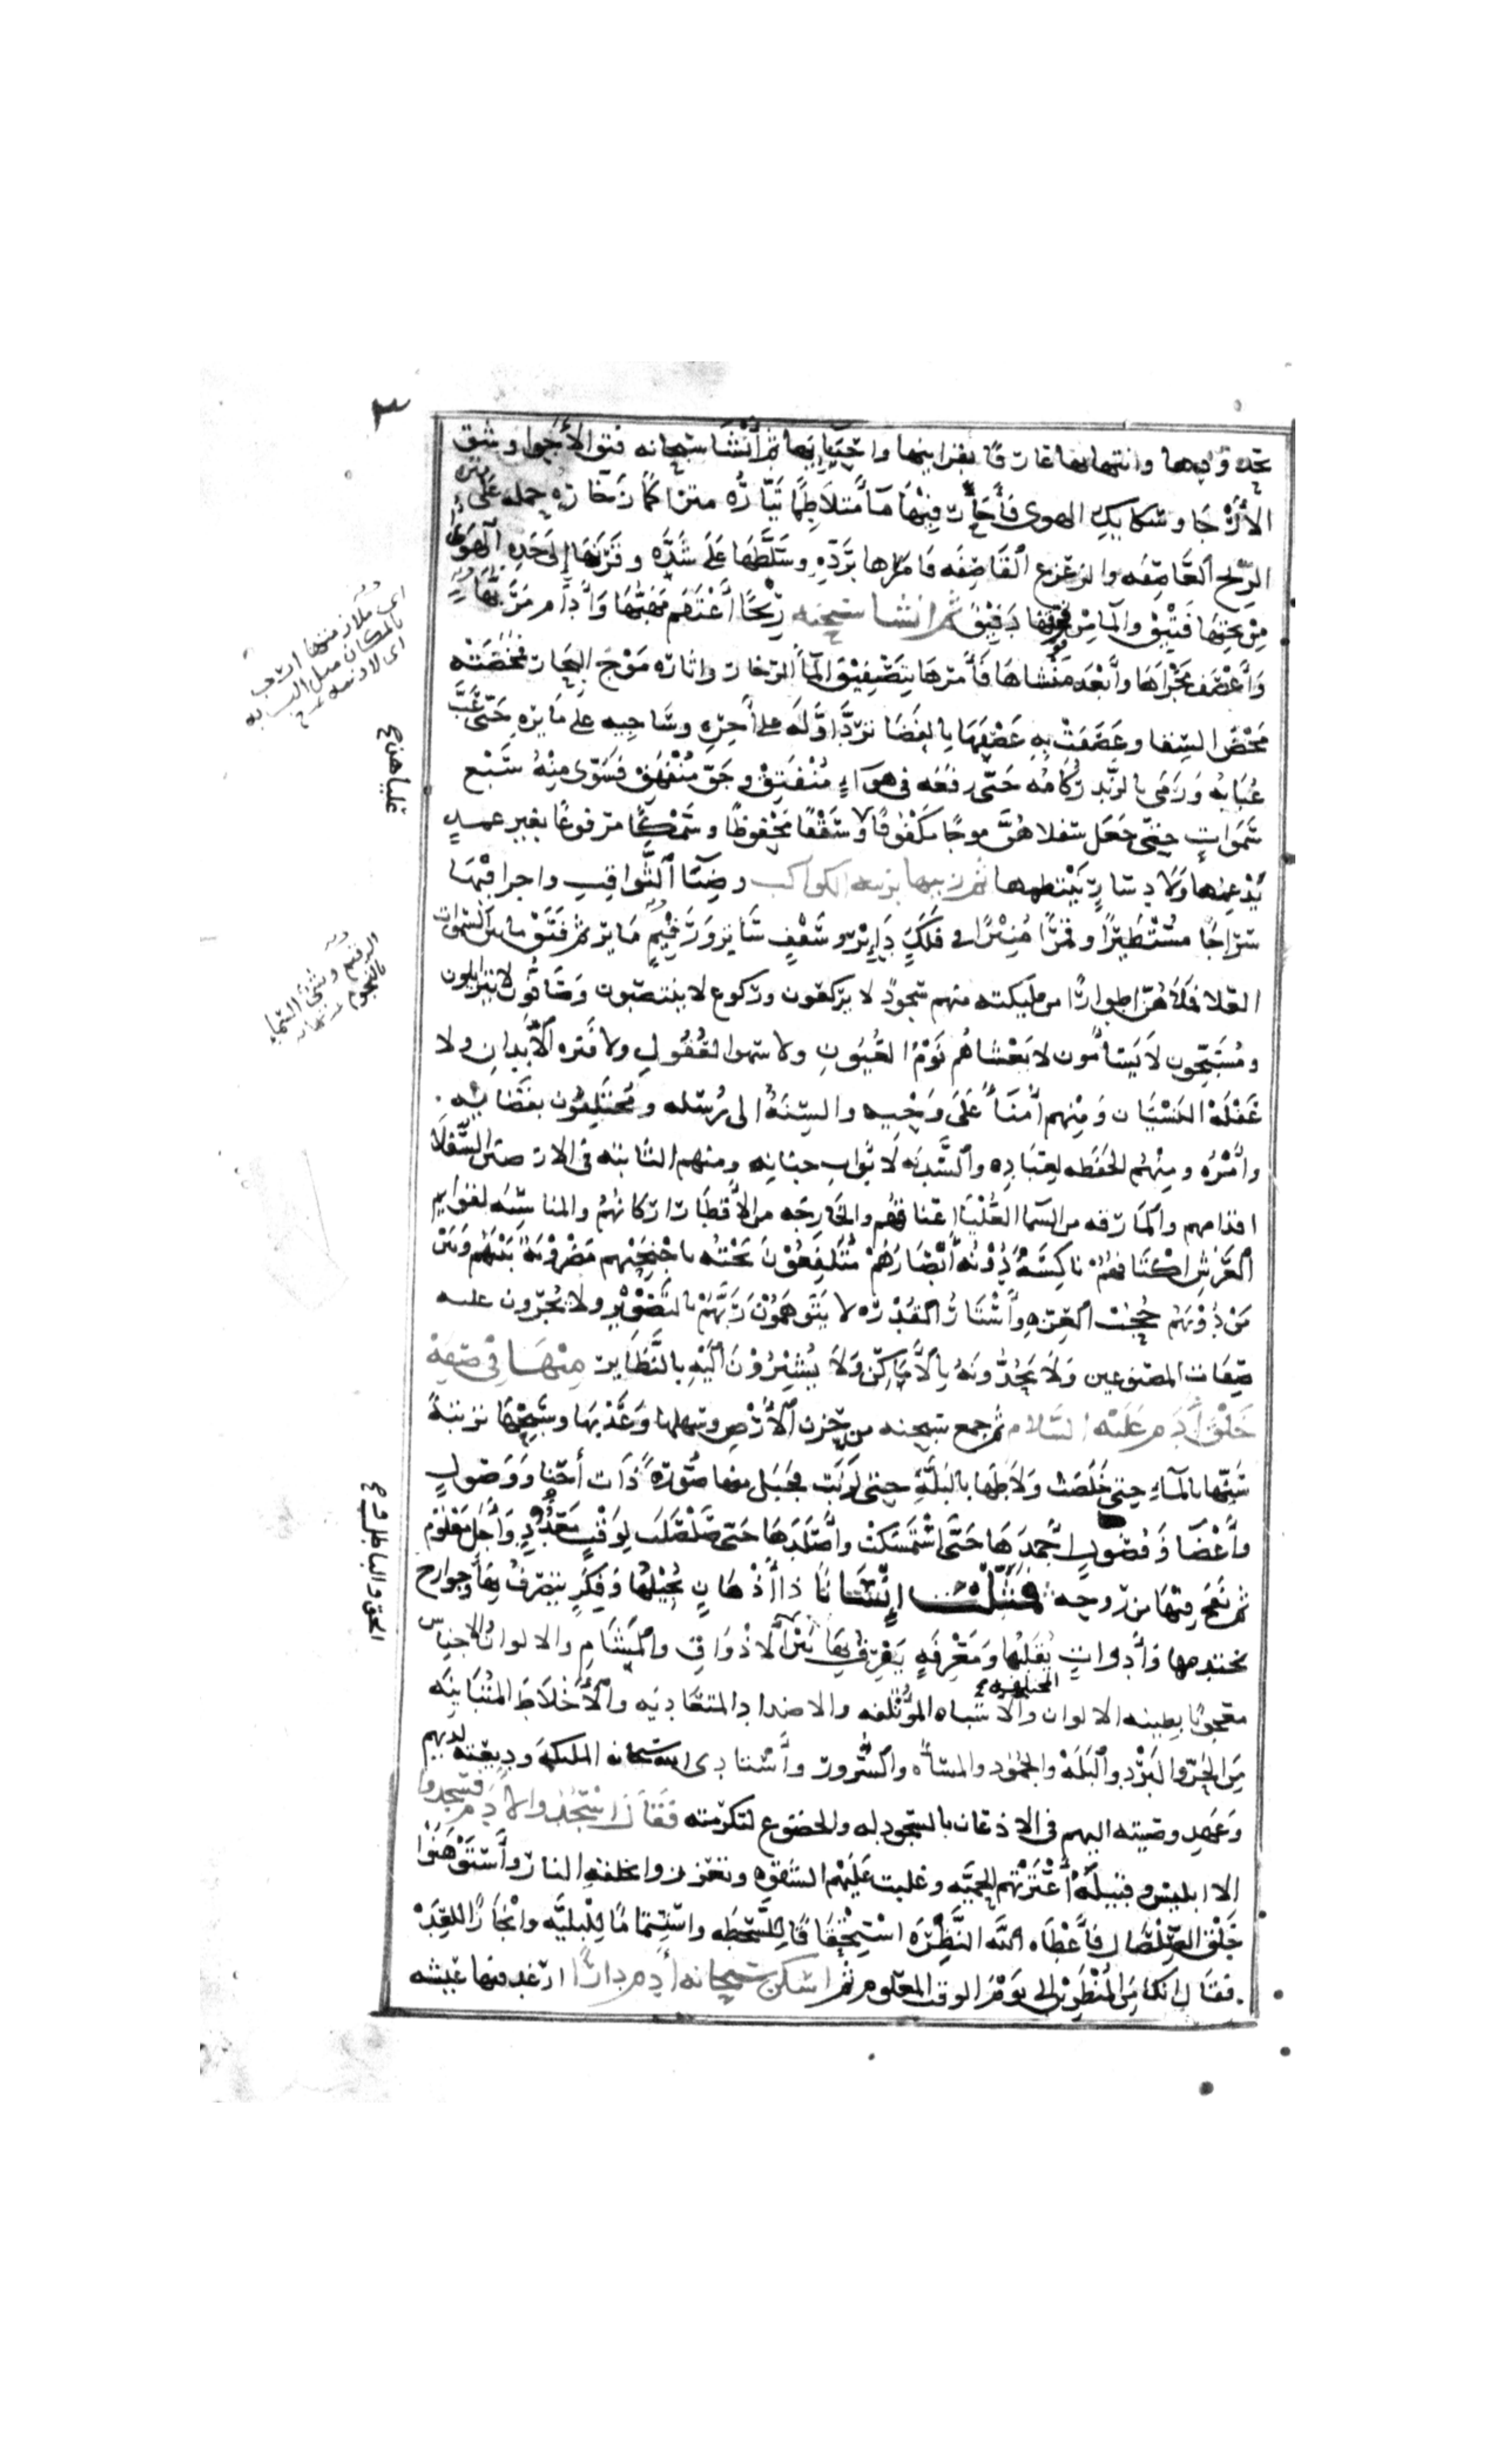 ٣
بحدودها وانتهائها عارفًا بقرائنها واحنائها ثم أنشأ سبحانه فتق الأجواء وشق
الأرجا وسكايك الهوى فأجار فيها مآ متلاطمًا تيّاره متراكمًا زخاره حمله على متن
الريح العاصفه والزعزع القاصفه فامرها بردّه وسلّطها على شدّه وقرنها إلى حدّه الهوى
من تحتها فتيق والما من فوقها دفيق ثم انشا سبحنه ريحًا أعتقم مهبّها وأدام مربّها
وأعصف مجراها وأبعد منشاها فأمرها بتصفيق المآ الزخار واثاره موج البحار فمخضته
مخض السقا وعصفت به عصفها بالفضا تردّ أوّله على أخره وساجيه على مايره حتّى عبّ
عُبابه ورمى بالزبد ركامه حتّى رفعه في هوآءٍ منفتق وجوّ منفهق فسوّى منه سبع
سموات حتى جعل سفلاهنّ موجًا مكفوفًا وسقفًا محفوظًا وسمكًا مرفوعًا بغير عمد
يدعمها ولا دسارٍ ينتظمها ثم زينها بزينه الكواكب وضيآ الثّواقب واجرا فيها
سراجًا مستطيرًا وقمرًا منيرًا في فلكٍ دايرٍ وسقفٍ سايرٍ ورقيمٍ مايرٍ ثم فتق ما بين السموات
العلا فملاهنّ اطوارًا من مليكته منهم سجودٌ لا يركعون وركوع لا ينتصبون وصافّون لا يتزايلون
ومُسبّحون لا يسأمون لا يغشاهم نوم العيون ولا سهو العقول ولا فتره الأبدان ولا
غفلة النسيان ومنهم أمنآ على وحيه والسنةٌ الى رسله ومختلفون بقضائه
وأمره ومنهم الحفظه لعباده والسّدنه لابواب جنانه ومنهم الثابته في الارضين السّفلا
اقدامهم والمارقه من السما العليا اعناقهم والخارجه من الأقطار اركانهم والمناسبه لقوايم
العرش اكتافهم ناكسةٌ دونه أبصارهم متلفعون تحته باجنحتهم مضروبة بينهم وبين
من دونهم حجب العزه وأستار القدره لا يتوهمون ربّهم بالتصوير ولا يجرون عليه
صفات المصنوعين ولا يحدّونه بالأماكن ولا يشيرون اليه بالنّظاير منها في صفه
خلق أدم عليه السلام ثم جمع سبحنه من حزن الأرض وسهلها وعذبها وسبخها تربةً
سنّها بالمآء حتى خلصت ولاطها بالبلّه حتى لزبت فجبل منها صورةً ذات أحنا ووصول
وأعضآ وفصول اجمدها حتّى استمسكت وأصلدها حتى صلصلت لوقتٍ معدودٍ وأجل معلوم
ثم نفخ فيها من روحه فمثلت إنسانًا ذا أذهانٍ يجيلها وفكرٍ يتصرّف بها وجوارح
يختدمها وأدواتٍ يقلبها ومعرفه يفرق بها بين الأذواق والمشام والالوان والاجناس
معجونًا بطينه الالوان المختلفه والأشباه المؤتلفه والاضداد المتعاديه والأخلاط المتباينه
من الحرّ والبرد والبلّه والجمود والمسآه والسّرور وأستادى الله سبحانه المليكه وديعته لديهم
وعهد وصيته اليهم في الاذعان بالسجود له والخضوع لتكرمته فقال اسجدوا لأدم فسجدوا
الا ابليس وقبيله أعترتهم الحميّه وغلبت عليهم الشقوه وتعززوا بخلقه النار وأستوهنوا
خلق الصّلصال فأعطاه الله النّظره استحقاقًا للسّخطه واستتمامًا للبليّه وانجازًا للعده
فقال انك من المنظرين الى يوم الوقت المعلوم ثم اسكن سبحانه أدم دارًا ارغد فيها عيشه
اى ملازمتها ارب
بالمكان
علياهن ح
الرقيم وشى السماء
بالنجوم
الحق والباطل ح